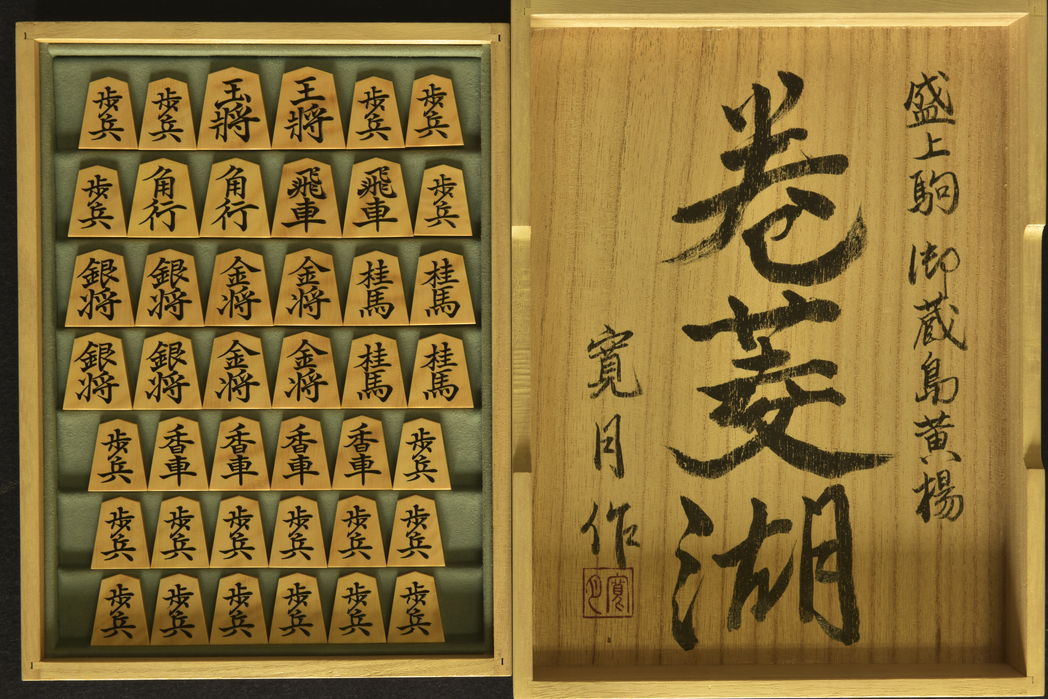 歩兵 歩兵 玉將 王將 歩兵 歩兵
歩兵 角行 角行 飛車 飛車 歩兵
銀将 銀将 金将 金将 桂馬 桂馬
銀将 銀将 金将 金将 桂馬 桂馬
歩兵 香車 香車 香車 香車 歩兵
歩兵 歩兵 歩兵 歩兵 歩兵 歩兵
歩兵 歩兵 歩兵 歩兵 歩兵 歩兵
盛上駒 御蔵島黄楊
巻菱湖
寛月作